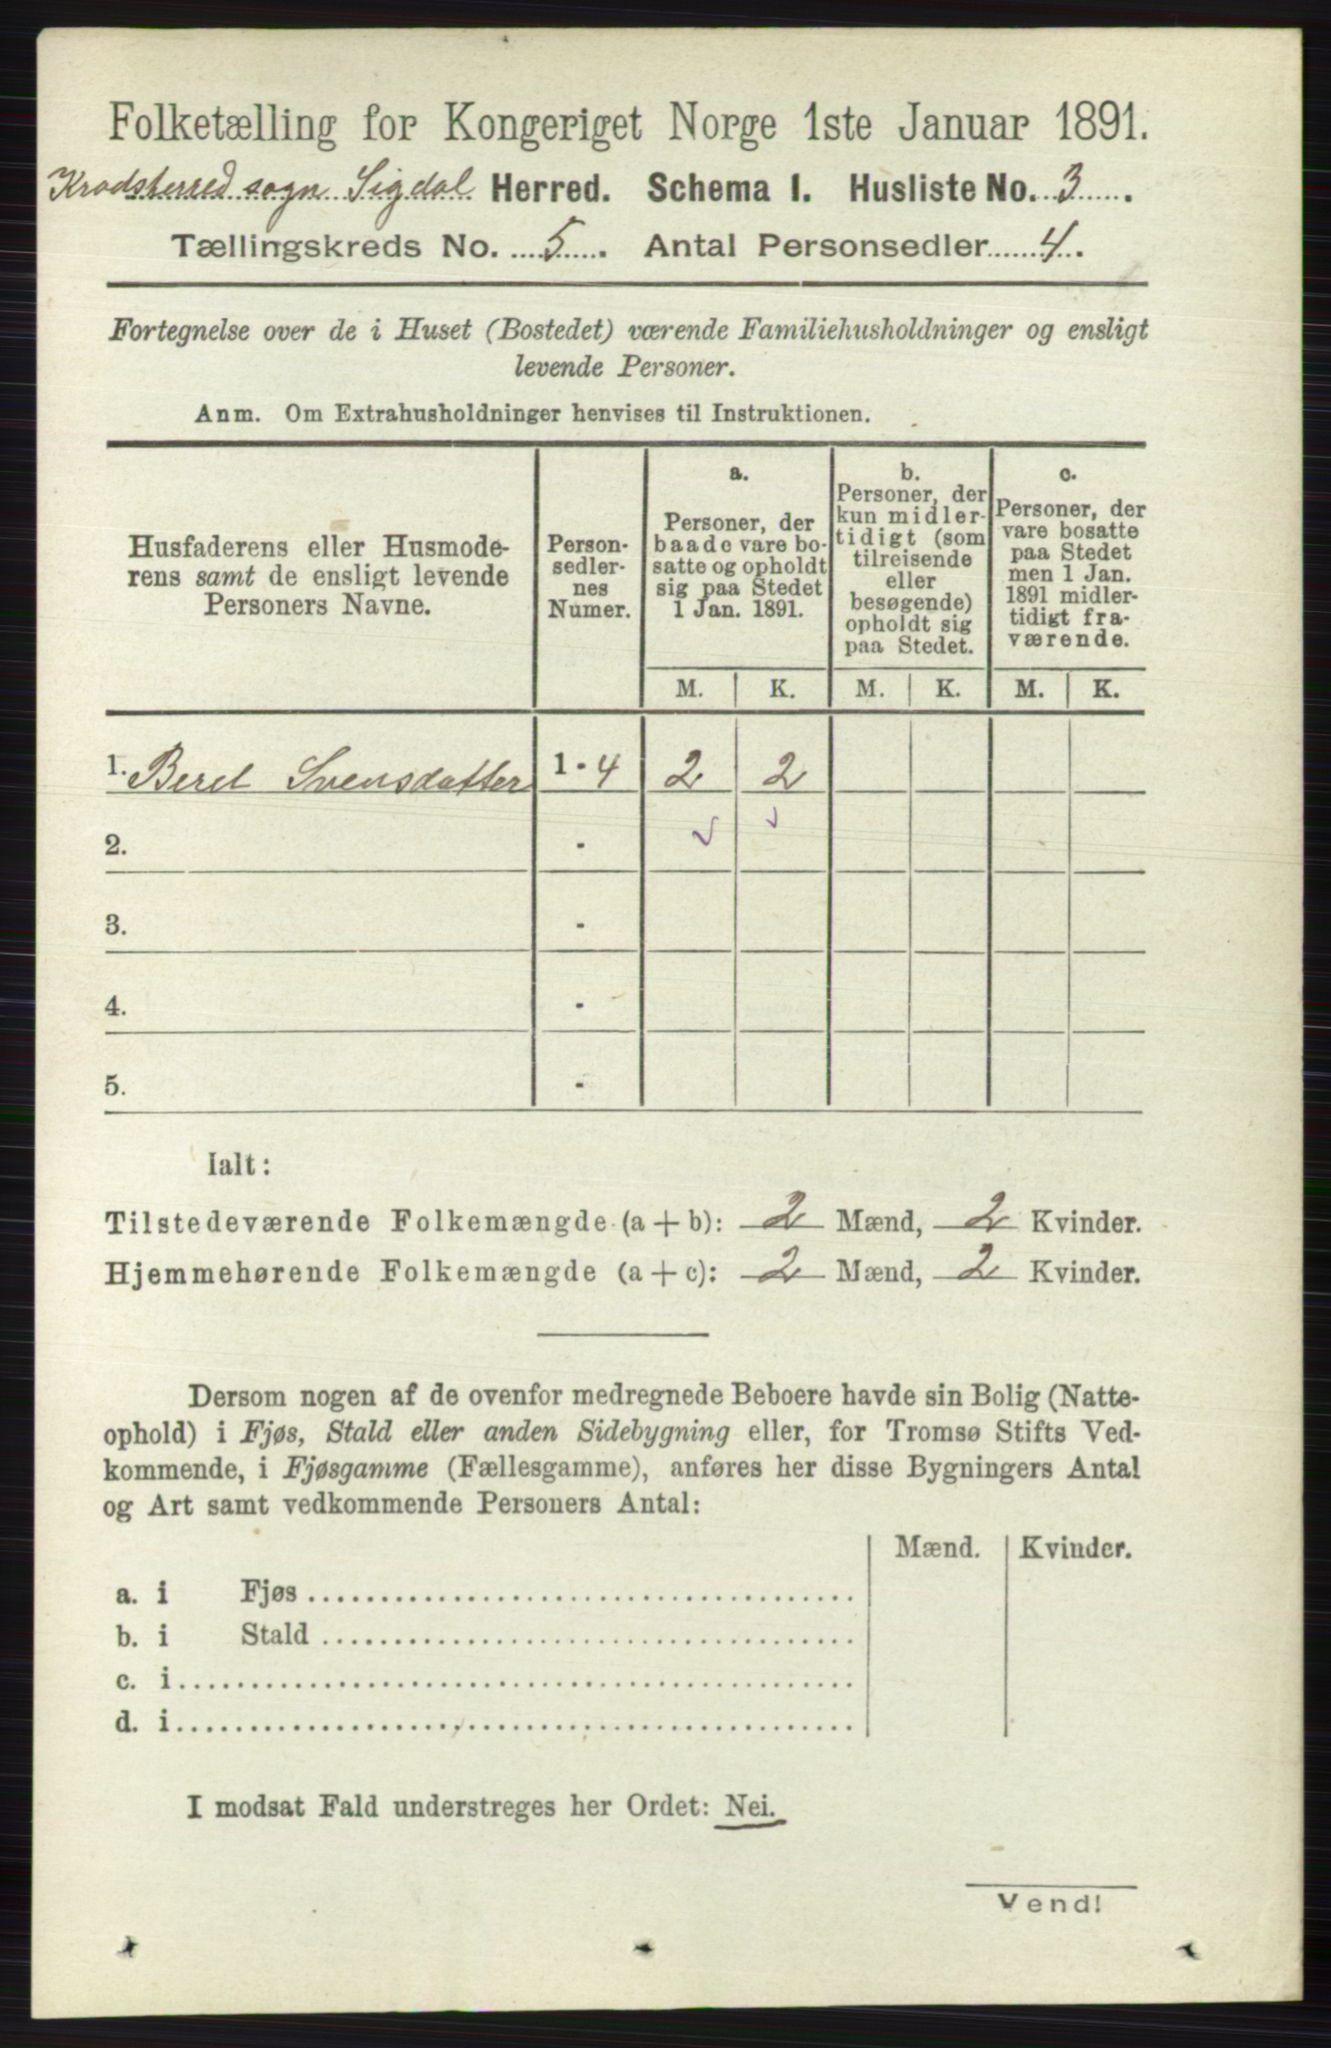 Folketælling for Kongeriget Norge 1ste Januar 1891.
Kradsherred sogn Sigdal Herred. Schema 1. Husliste No. 3.
Tællingskreds No. 5. Antal Personsedler 4.
Fortegnelse over de i Huset (Bostedet) værende Familiehusholdninger og ensligt
levende Personer.
Anm. Om Extrahusholdninger henvises til Instruktionen.
Husfaderens eller Husmode-
rens samt de ensligt levende
Personers Navne.
Person-
sedler-
nes
Numer.
a.
Personer, der
baade vare bo-
satte og opholdt
sig paa Stedet
1 Jan. 1891.
b.
Personer, der
kun midler-
tidigt (som
tilreisende
eller
besøgende)
opholdt sig
paa Stedet.
c.
Personer, der
vare bosatte
paa Stedet
men 1 Jan.
1891 midler-
tidigt fra-
værende.
M. K. M. K. M. K.
1. Beret Svensdatter 1 - 4 2 2
2. -
3. -
4. -
5. -
Ialt:
Tilstedeværende Folkemængde (a + b): 2 Mænd, 2 Kvinder.
Hjemmehørende Folkemængde (a + c): 2 Mænd, 2 Kvinder.
Dersom nogen af de ovenfor medregnede Beboere havde sin Bolig (Natte-
ophold) i Fjøs, Stald eller anden Sidebygning eller, for Tromsø Stifts Ved-
kommende, i Fjøsgamme (Fællesgamme), anføres her disse Bygningers Antal
og Art samt vedkommende Personers Antal:
Mænd. Kvinder.
a. i Fjøs
b. i Stald
c. i
d. i
I modsat Fald understreges her Ordet: Nei.
Vend!